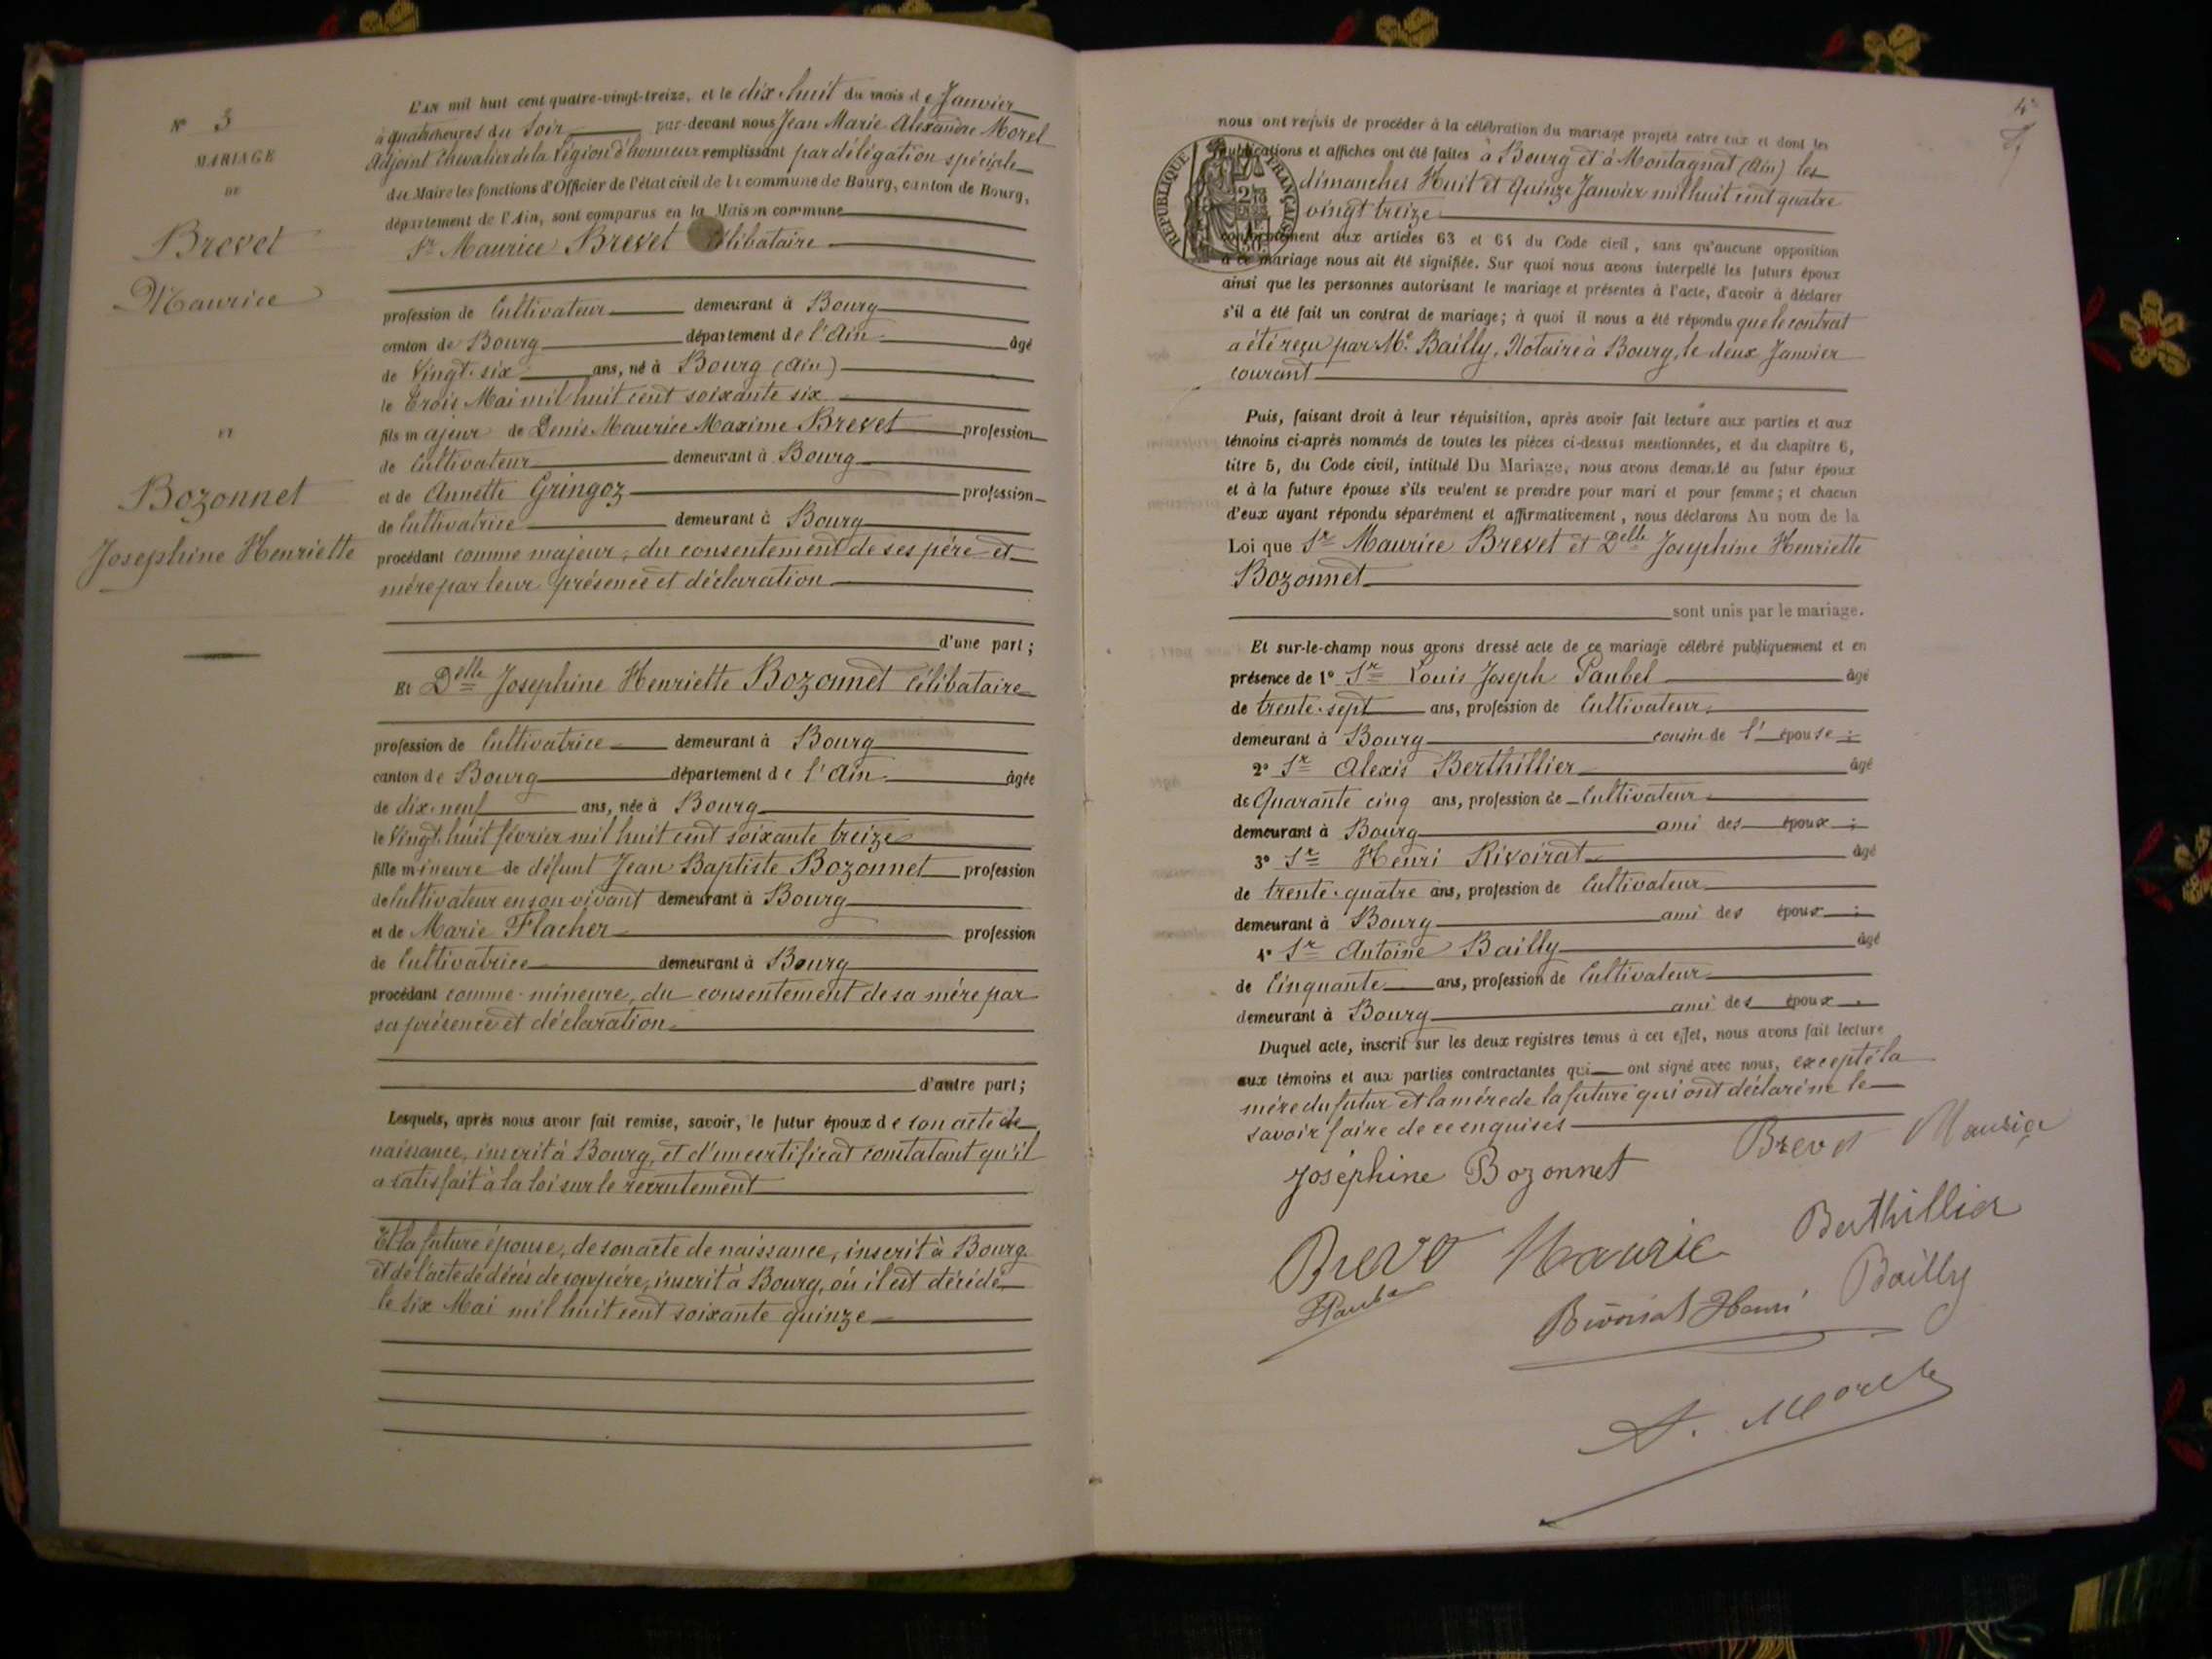 N° 3
MARIAGE
DE
Brevet
Maurice
ET
Bozonnet
Josephine Henriette
L'AN mil huit cent quatre-vingt-treize, et le dix-huit du mois de Janvier
à quatre heures du Soir par-devant nous Jean Marie Alexandre Morel
Adjoint Chevalier de la Légion d'honneur remplissant par délégation spéciale
du Maire les fonctions d'Officier de l'état civil de la commune de Bourg, canton de Bourg,
département de l'Ain, sont comparus en la Maison commune
Sr Maurice Brevet Célibataire
profession de Cultivateur demeurant à Bourg
canton de Bourg département de l'Ain âgé
de Vingt-six ans, né à Bourg (Ain)
le Trois Mai mil huit cent soixante six
fils majeur de Denis Maurice Maxime Brevet profession
de Cultivateur demeurant à Bourg
et de Annette Gringoz profession
de Cultivatrice demeurant à Bourg
procédant comme majeur, du consentement de ses père et
mère par leur présence et déclaration
d'une part;
Et Delle Josephine Henriette Bozonnet Célibataire
profession de Cultivatrice demeurant à Bourg
canton de Bourg département de l'Ain âgée
de dix-neuf ans, née à Bourg
le Vingt-huit février mil huit cent soixante treize
fille mineure de défunt Jean Baptiste Bozonnet profession
de Cultivateur en son vivant demeurant à Bourg
et de Marie Flacher profession
de Cultivatrice demeurant à Bourg
procédant comme mineure, du consentement de sa mère par
sa présence et déclaration
d'autre part;
Lesquels, après nous avoir fait remise, savoir, le futur époux de son acte de
naissance, inscrit à Bourg, et d'un certificat constatant qu'il
a satisfait à la loi sur le recrutement
Et la future épouse, de son acte de naissance, inscrit à Bourg
et de l'acte de décès de son père, inscrit à Bourg, où il est décédé
le Six Mai mil huit cent soixante quinze
nous ont requis de procéder à la célébration du mariage projeté entre eux et dont les
publications et affiches ont été faites à Bourg et à Montagnat (Ain) les
dimanches Huit et Quinze Janvier mil huit cent quatre
vingt treize
RÉPUBLIQUE FRANÇAISE
conformément aux articles 63 et 64 du Code civil, sans qu'aucune opposition
à ce mariage nous ait été signifiée. Sur quoi nous avons interpellé les futurs époux
ainsi que les personnes autorisant le mariage et présentes à l'acte, d'avoir à déclarer
s'il a été fait un contrat de mariage; à quoi il nous a été répondu que le contrat
a été reçu par Me Bailly, Notaire à Bourg, le deux Janvier
courant
Puis, faisant droit à leur réquisition, après avoir fait lecture aux parties et aux
témoins ci-après nommés de toutes les pièces ci-dessus mentionnées, et du chapitre 6,
titre 5, du Code civil, intitulé Du Mariage, nous avons demandé au futur époux
et à la future épouse s'ils veulent se prendre pour mari et pour femme; et chacun
d'eux ayant répondu séparément et affirmativement, nous déclarons Au nom de la
Loi que Sr Maurice Brevet et Delle Josephine Henriette
Bozonnet
sont unis par le mariage.
Et sur-le-champ nous avons dressé acte de ce mariage célébré publiquement et en
présence de 1° Sr Louis Joseph Paubel âgé
de trente-sept ans, profession de Cultivateur
demeurant à Bourg cousin de l'épouse;
2° Sr Alexis Berthillier âgé
de Quarante cinq ans, profession de Cultivateur
demeurant à Bourg ami des époux;
3° Sr Henri Rivoirat âgé
de trente-quatre ans, profession de Cultivateur
demeurant à Bourg ami des époux;
4° Sr Antoine Bailly âgé
de Cinquante ans, profession de Cultivateur
demeurant à Bourg ami des époux.
Duquel acte, inscrit sur les deux registres tenus à cet effet, nous avons fait lecture
aux témoins et aux parties contractantes qui ont signé avec nous, excepté la
mère du futur et la mère de la future qui ont déclaré ne le
savoir faire de ce enquises
Joséphine Bozonnet Brevet Maurice
Brevo Maurice Berthillier
Henri Bailly
A. Morel